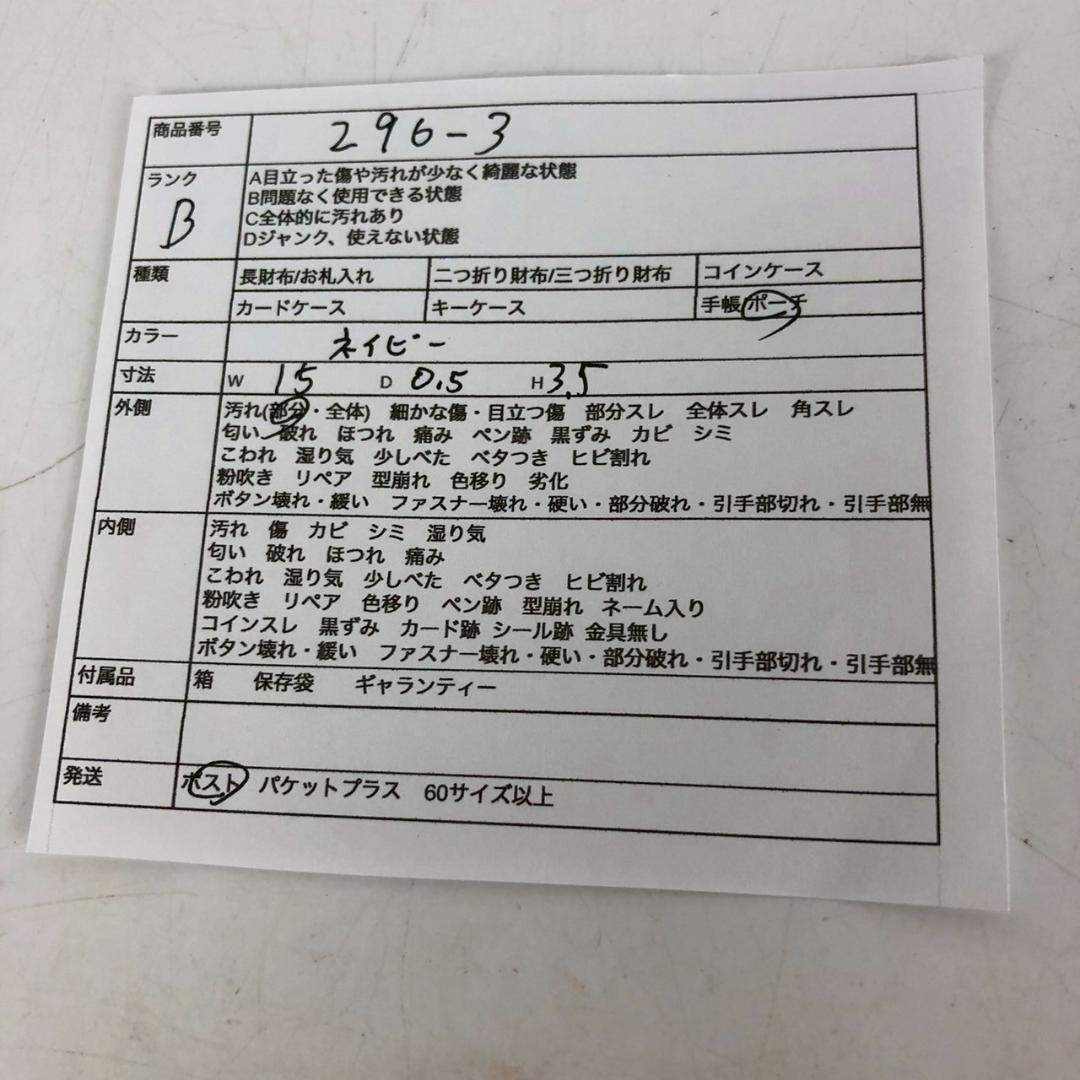 商品番号 296-3
ランク B
A目立った傷や汚れが少なく綺麗な状態
B問題なく使用できる状態
C全体的に汚れあり
Dジャンク、使えない状態
種類 長財布/お札入れ 二つ折り財布/三つ折り財布 コインケース
カードケース キーケース 手帳 ポーチ
カラー ネイビー
寸法 W 15 D 0.5 H 3.5
外側 汚れ(部分・全体) 細かな傷・目立つ傷 部分スレ 全体スレ 角スレ
匂い 破れ ほつれ 痛み ペン跡 黒ずみ カビ シミ
こわれ 湿り気 少しべた ベタつき ヒビ割れ
粉吹き リペア 型崩れ 色移り 劣化
ボタン壊れ・緩い ファスナー壊れ・硬い・部分破れ・引手部切れ・引手部無
内側 汚れ 傷 カビ シミ 湿り気
匂い 破れ ほつれ 痛み
こわれ 湿り気 少しべた ベタつき ヒビ割れ
粉吹き リペア 色移り ペン跡 型崩れ ネーム入り
コインスレ 黒ずみ カード跡 シール跡 金具無し
ボタン壊れ・緩い ファスナー壊れ・硬い・部分破れ・引手部切れ・引手部無
付属品 箱 保存袋 ギャランティー
備考
発送 ポスト パケットプラス 60サイズ以上